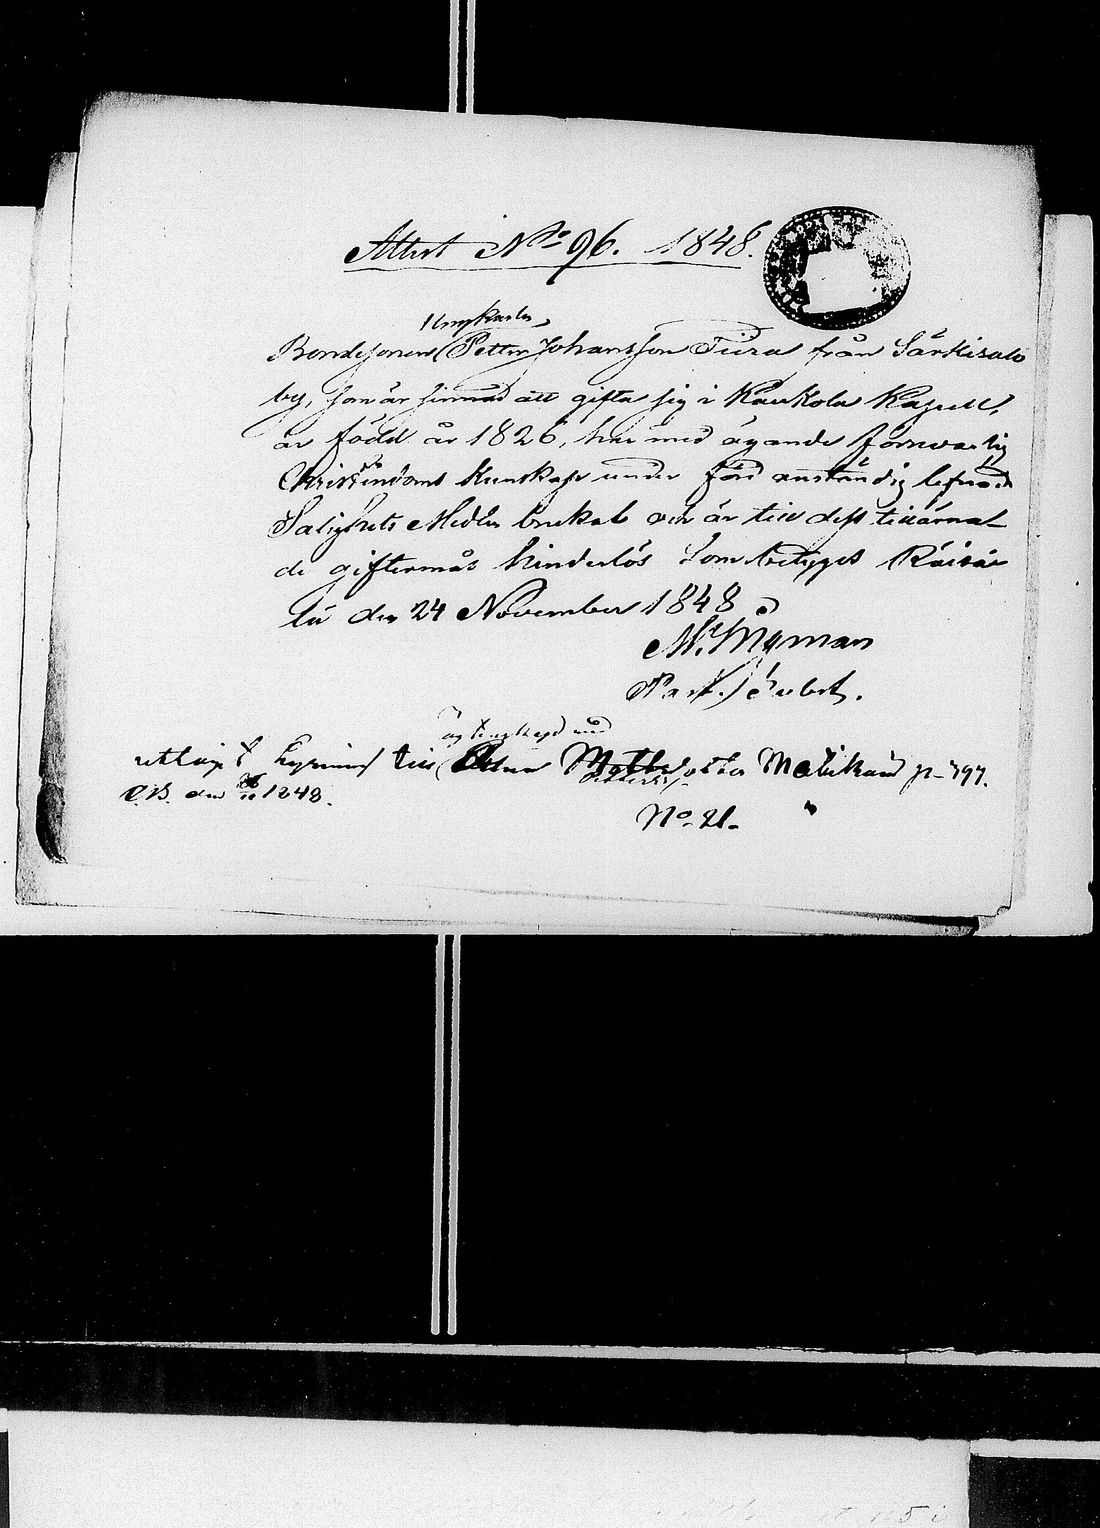 Attest No 96. 1848.
Ungkarlen
Bondesonen Petter Johansson Tiira från Särkisalo
by, som är sinnad att gifta sig i Kaukola Kapell,
är född år 1826, har med ägande försvarlig
Christendoms Kunskap under förd anständig lefnad
Salighets Medlen brukat och är till dess tillärnat
de giftermås hinderlös Som betygas Räisä
lä den 24 November 1848
Nyman
äktenskap med
uttagit Lysning till Matts dotter p. 797.
d. 1848.
No 21.